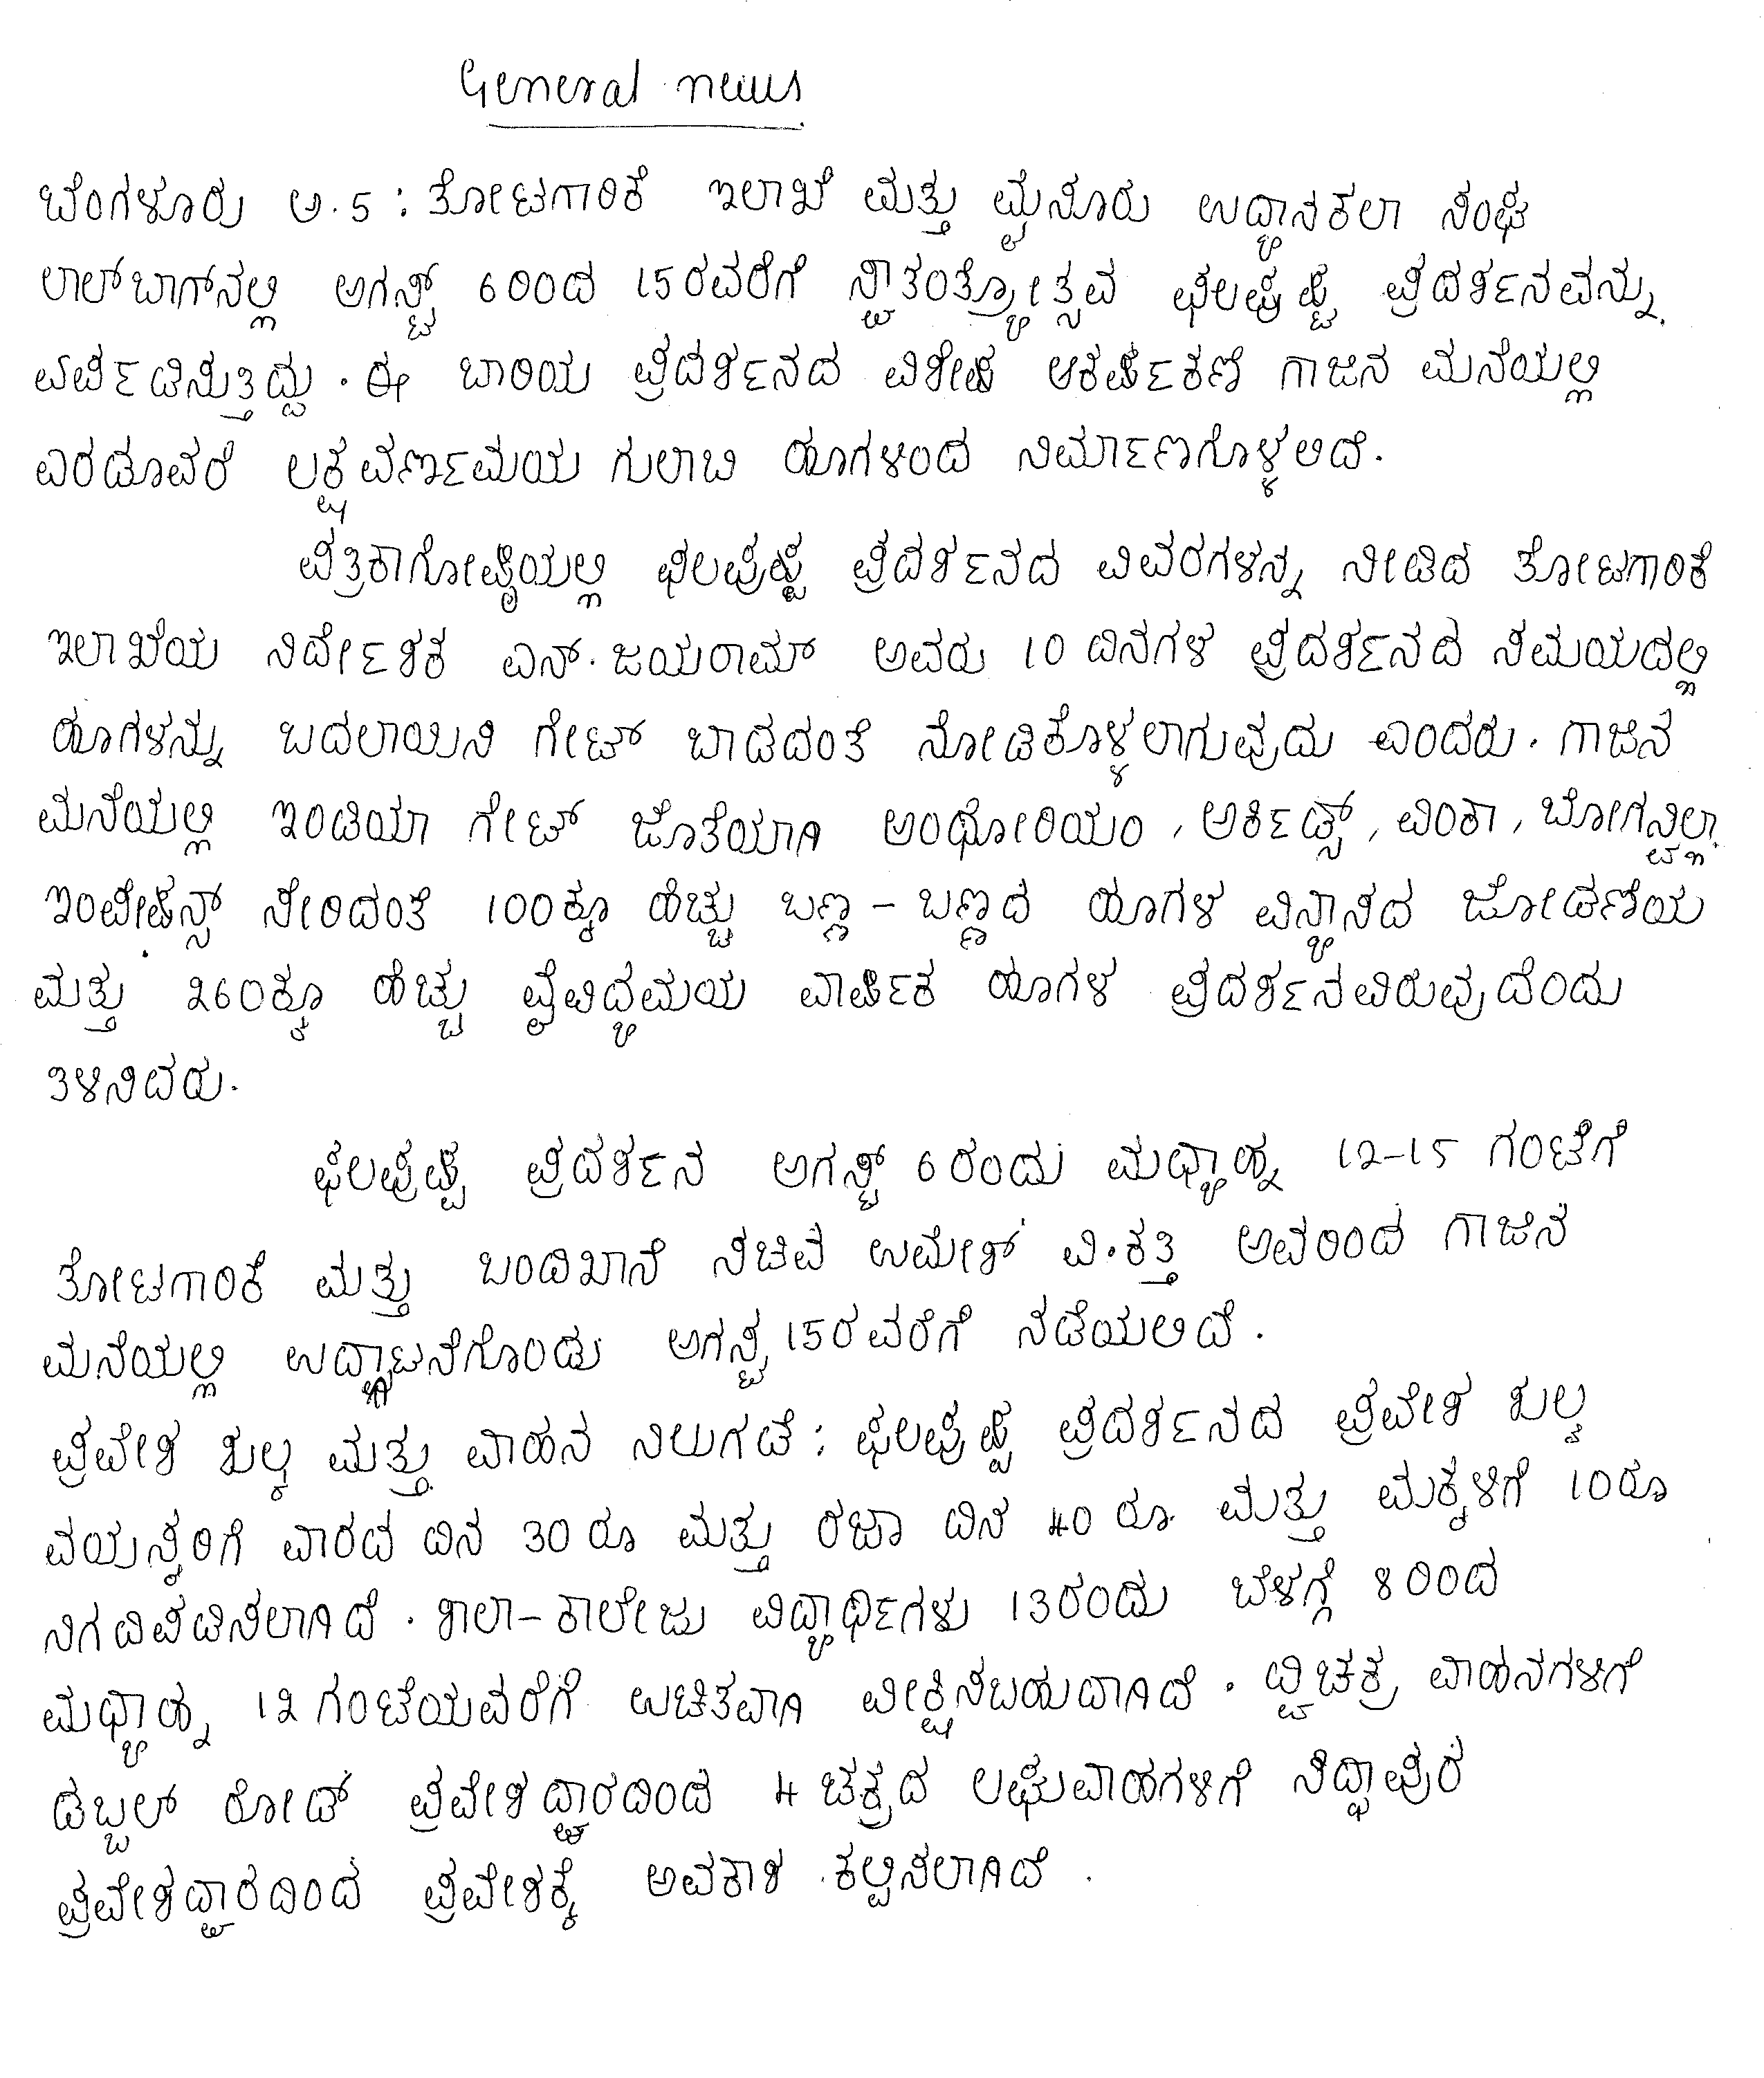 General news
ಬೆಂಗಳೂರು ಅ.5: ತೋಟಗಾರಿಕೆ ಇಲಾಖೆ ಮತ್ತು ಮೈಸೂರು ಉದ್ಯಾನಕಲಾ ಸಂಘ
ಲಾಲ್‌ಬಾಗ್‌ನಲ್ಲಿ ಅಗಸ್ಟ್ 6ರಿಂದ 15ರವರೆಗೆ ಸ್ವಾತಂತ್ರ್ಯೋತ್ಸವ ಫಲಪುಷ್ಪ ಪ್ರದರ್ಶನವನ್ನು
ಏರ್ಪಡಿಸುತ್ತಿದ್ದು. ಈ ಬಾರಿಯ ಪ್ರದರ್ಶನದ ವಿಶೇಷ ಆಕರ್ಷಕಣೆ ಗಾಜಿನ ಮನೆಯಲ್ಲಿ
ಎರಡೂವರೆ ಲಕ್ಷ ವರ್ಣಮಯ ಗುಲಾಬಿ ಹೂಗಳಿಂದ ನಿರ್ಮಾಣಗೊಳ್ಳಲಿದೆ.
ಪತ್ರಿಕಾಗೋಷ್ಠಿಯಲ್ಲಿ ಫಲಪುಷ್ಪ ಪ್ರದರ್ಶನದ ವಿವರಗಳನ್ನು ನೀಡಿದ ತೋಟಗಾರಿಕೆ
ಇಲಾಖೆಯ ನಿರ್ದೇಶಕ ಎನ್.ಜಯರಾಮ್ ಅವರು 10 ದಿನಗಳ ಪ್ರದರ್ಶನದ ಸಮಯದಲ್ಲಿ
ಹೂಗಳನ್ನು ಬದಲಾಯಿಸಿ ಗೇಟ್ ಬಾಡದಂತೆ ನೋಡಿಕೊಳ್ಳಲಾಗುವುದು ಎಂದರು. ಗಾಜಿನ
ಮನೆಯಲ್ಲಿ ಇಂಡಿಯಾ ಗೇಟ್ ಜೊತೆಯಾಗಿ ಅಂಥೋರಿಯಂ, ಆರ್ಕಿಡ್ಸ್, ವಿಂಕಾ, ಬೋಗನ್ವಿಲ್ಲಾ
ಇಂಪೇಷನ್ಸ್ ಸೇರಿದಂತೆ 100ಕ್ಕೂ ಹೆಚ್ಚು ಬಣ್ಣ - ಬಣ್ಣದ ಹೂಗಳ ವಿನ್ಯಾಸದ ಜೋಡಣೆಯ
ಮತ್ತು 260ಕ್ಕೂ ಹೆಚ್ಚು ವೈವಿಧ್ಯಮಯ ವಾರ್ಷಿಕ ಹೂಗಳ ಪ್ರದರ್ಶನವಿರುವುದೆಂದು
ತಿಳಿಸಿದರು.
ಫಲಪುಷ್ಪ ಪ್ರದರ್ಶನ ಅಗಸ್ಟ್ 6ರಂದು ಮಧ್ಯಾಹ್ನ 12-15 ಗಂಟೆಗೆ
ತೋಟಗಾರಿಕೆ ಮತ್ತು ಬಂದಿಖಾನೆ ಸಚಿವ ಉಮೇಶ್ ವಿ.ಕತ್ತಿ ಅವರಿಂದ ಗಾಜಿನ
ಮನೆಯಲ್ಲಿ ಉದ್ಘಾಟನೆಗೊಂಡು ಅಗಸ್ಟ 15ರವರೆಗೆ ನಡೆಯಲಿದೆ.
ಪ್ರವೇಶ ಶುಲ್ಕ ಮತ್ತು ವಾಹನ ನಿಲುಗಡೆ: ಫಲಪುಷ್ಪ ಪ್ರದರ್ಶನದ ಪ್ರವೇಶ ಶುಲ್ಕ
ವಯಸ್ಕರಿಗೆ ವಾರದ ದಿನ 30 ರೂ ಮತ್ತು ರಜಾ ದಿನ 40 ರೂ ಮತ್ತು ಮಕ್ಕಳಿಗೆ 10ರೂ
ನಿಗದಿಪಡಿಸಲಾಗಿದೆ. ಶಾಲಾ-ಕಾಲೇಜು ವಿದ್ಯಾರ್ಥಿಗಳು 13ರಂದು ಬೆಳಗ್ಗೆ 8ರಿಂದ
ಮಧ್ಯಾಹ್ನ 12 ಗಂಟೆಯವರೆಗೆ ಉಚಿತವಾಗಿ ವೀಕ್ಷಿಸಬಹುದಾಗಿದೆ. ದ್ವಿಚಕ್ರ ವಾಹನಗಳಿಗೆ
ಡಬ್ಬಲ್ ರೋಡ್ ಪ್ರವೇಶದ್ವಾರದಿಂದ 4 ಚಕ್ರದ ಲಘುವಾಹಗಳಿಗೆ ಸಿದ್ಧಾಪುರ
ಪ್ರವೇಶದ್ವಾರದಿಂದ ಪ್ರವೇಶಕ್ಕೆ ಅವಕಾಶ ಕಲ್ಪಿಸಲಾಗಿದೆ.